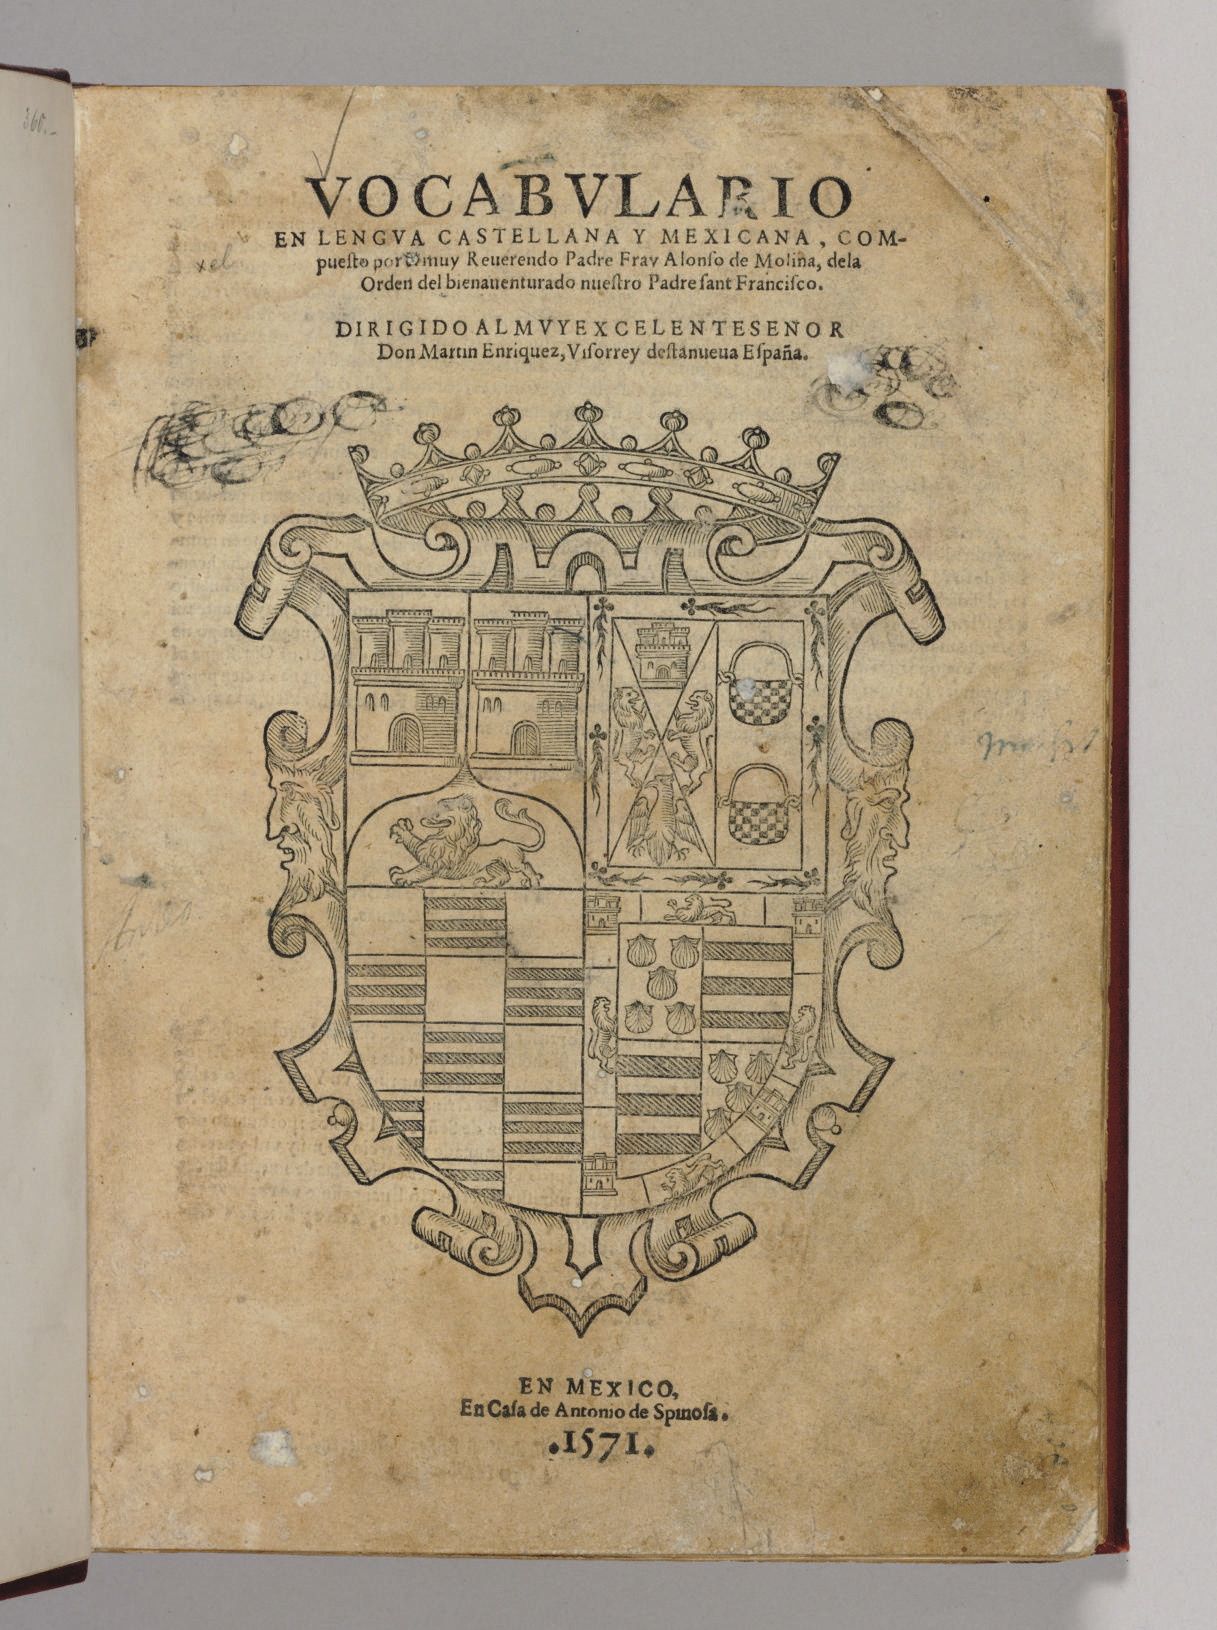 366.-
VOCABVLARIO
EN LENGVA CASTELLANA Y MEXICANA, COM-
pueſto por el muy Reuerendo Padre Fray Alonſo de Molina, dela
Orden del bienauenturado nueſtro Padre ſant Franciſco.
DIRIGIDO AL MVY EXCELENTE SENOR
Don Martin Enriquez, Viſorrey deſta nueua Eſpaña.
EN MEXICO,
En Caſa de Antonio de Spinoſa.
.1571.